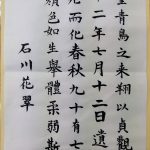 望青鳥之来翔以貞觀
十二年七月十二日遺
形而化春秋九十有七
顏色如生舉體柔弱斯
石川花翠